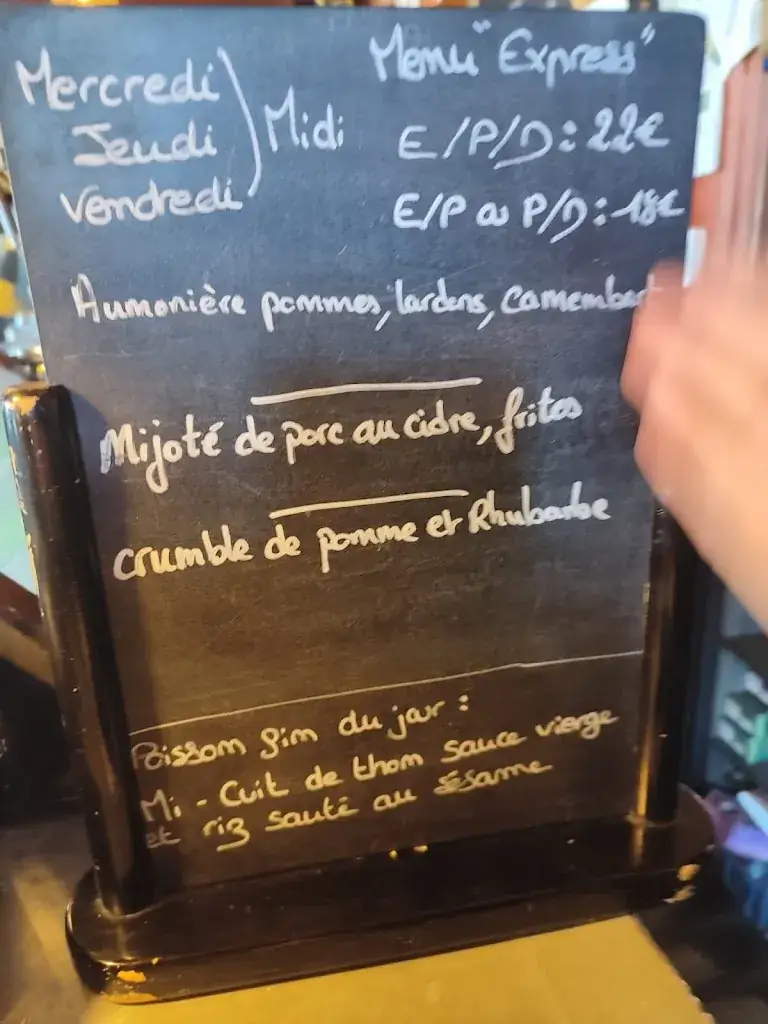 Mercredi
Jeudi
Vendredi
Midi
Menu "Express"
E/P/D : 22€
E/P ou P/D : 18€
Aumonière pommes, lardons, camembert
Mijoté de porc au cidre, frites
crumble de pomme et Rhubarbe
Poisson fin du jour :
Mi-Cuit de thon sauce vierge
et riz sauté au sésame